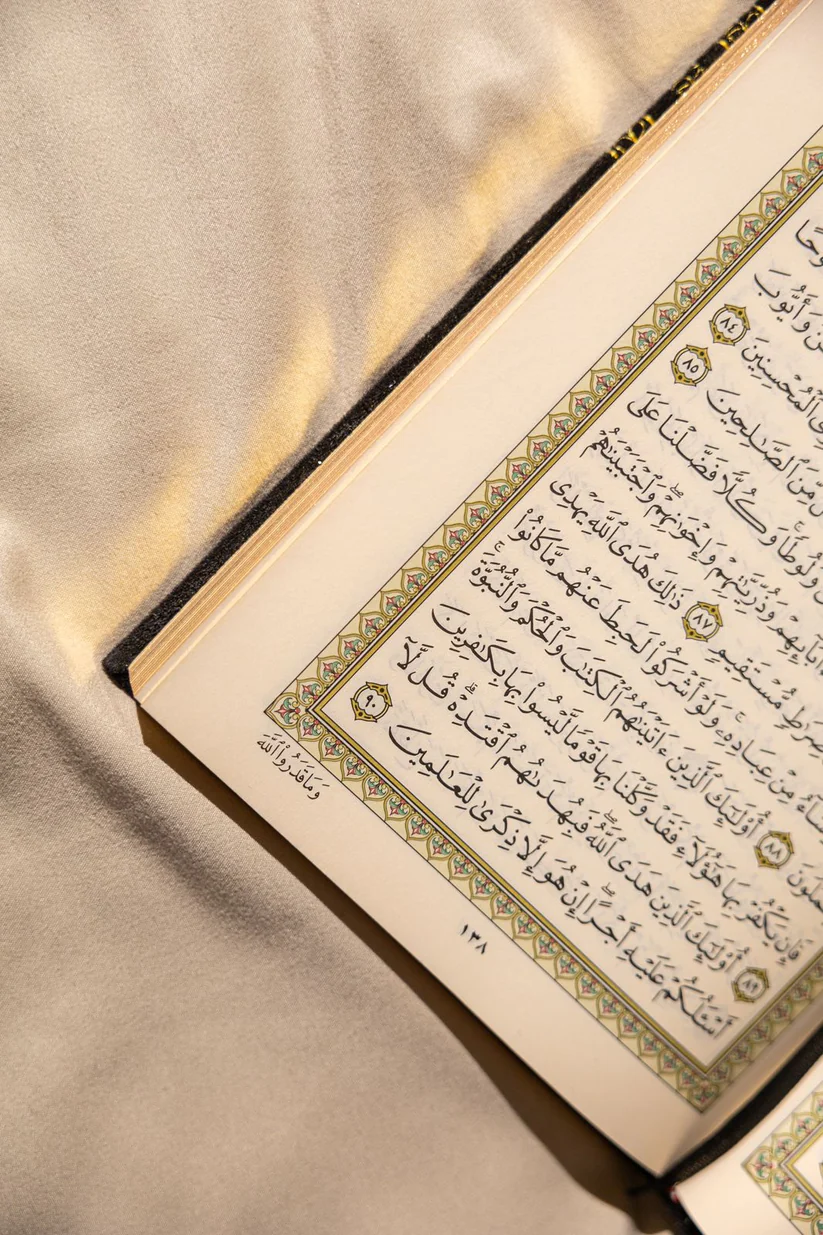 وَأَيُّوبَ
ٱلْمُحْسِنِينَ ٨٤
مِّنَ ٱلصَّٰلِحِينَ ٨٥
وَلُوطًا ۚ وَكُلًّا فَضَّلْنَا عَلَى
ءَابَآئِهِمْ وَذُرِّيَّٰتِهِمْ وَإِخْوَٰنِهِمْ ۖ وَٱجْتَبَيْنَٰهُمْ
صِرَٰطٍ مُّسْتَقِيمٍ ٨٧ ذَٰلِكَ هُدَى ٱللَّهِ يَهْدِى
مِنْ عِبَادِهِۦ ۚ وَلَوْ أَشْرَكُوا۟ لَحَبِطَ عَنْهُم مَّا كَانُوا۟
٨٨ أُو۟لَٰٓئِكَ ٱلَّذِينَ ءَاتَيْنَٰهُمُ ٱلْكِتَٰبَ وَٱلْحُكْمَ وَٱلنُّبُوَّةَ ۚ
فَإِن يَكْفُرْ بِهَا هَٰٓؤُلَآءِ فَقَدْ وَكَّلْنَا بِهَا قَوْمًا لَّيْسُوا۟ بِهَا بِكَٰفِرِينَ
٨٩ أُو۟لَٰٓئِكَ ٱلَّذِينَ هَدَى ٱللَّهُ ۖ فَبِهُدَىٰهُمُ ٱقْتَدِهْ ۗ قُل لَّآ
أَسْـَٔلُكُمْ عَلَيْهِ أَجْرًا ۖ إِنْ هُوَ إِلَّا ذِكْرَىٰ لِلْعَٰلَمِينَ ٩٠
وَمَا قَدَرُوا۟ ٱللَّهَ
١٣٨